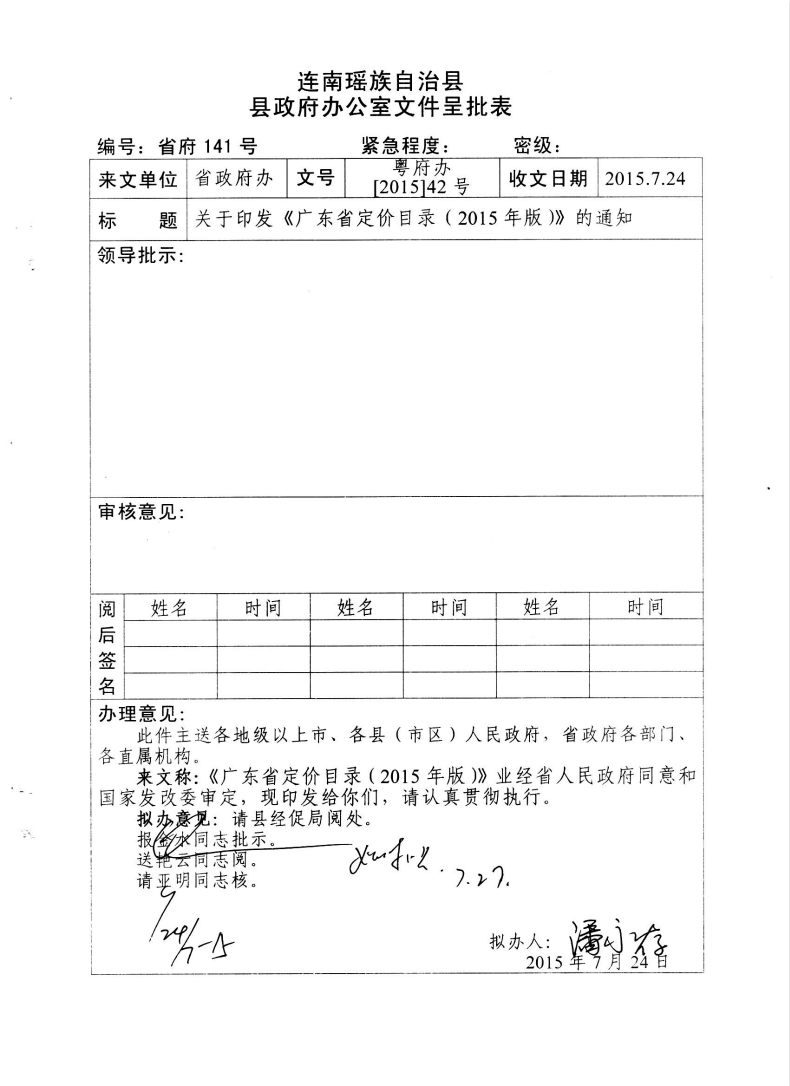 连南瑶族自治县
县政府办公室文件呈批表
编号：省府 141 号 紧急程度： 密级：
来文单位 省政府办 文号 粤府办[2015]42 号 收文日期 2015.7.24
标 题 关于印发《广东省定价目录（2015 年版）》的通知
领导批示：
审核意见：
阅后签名 姓名 时间 姓名 时间 姓名 时间
办理意见：
此件主送各地级以上市、各县（市区）人民政府，省政府各部门、
各直属机构。
来文称：《广东省定价目录（2015 年版）》业经省人民政府同意和
国家发改委审定，现印发给你们，请认真贯彻执行。
拟办意见：请县经促局阅处。
报金水同志批示。
送艳云同志阅。
请亚明同志核。
7.27.
24/7-15
拟办人：
2015 年 7 月 24 日